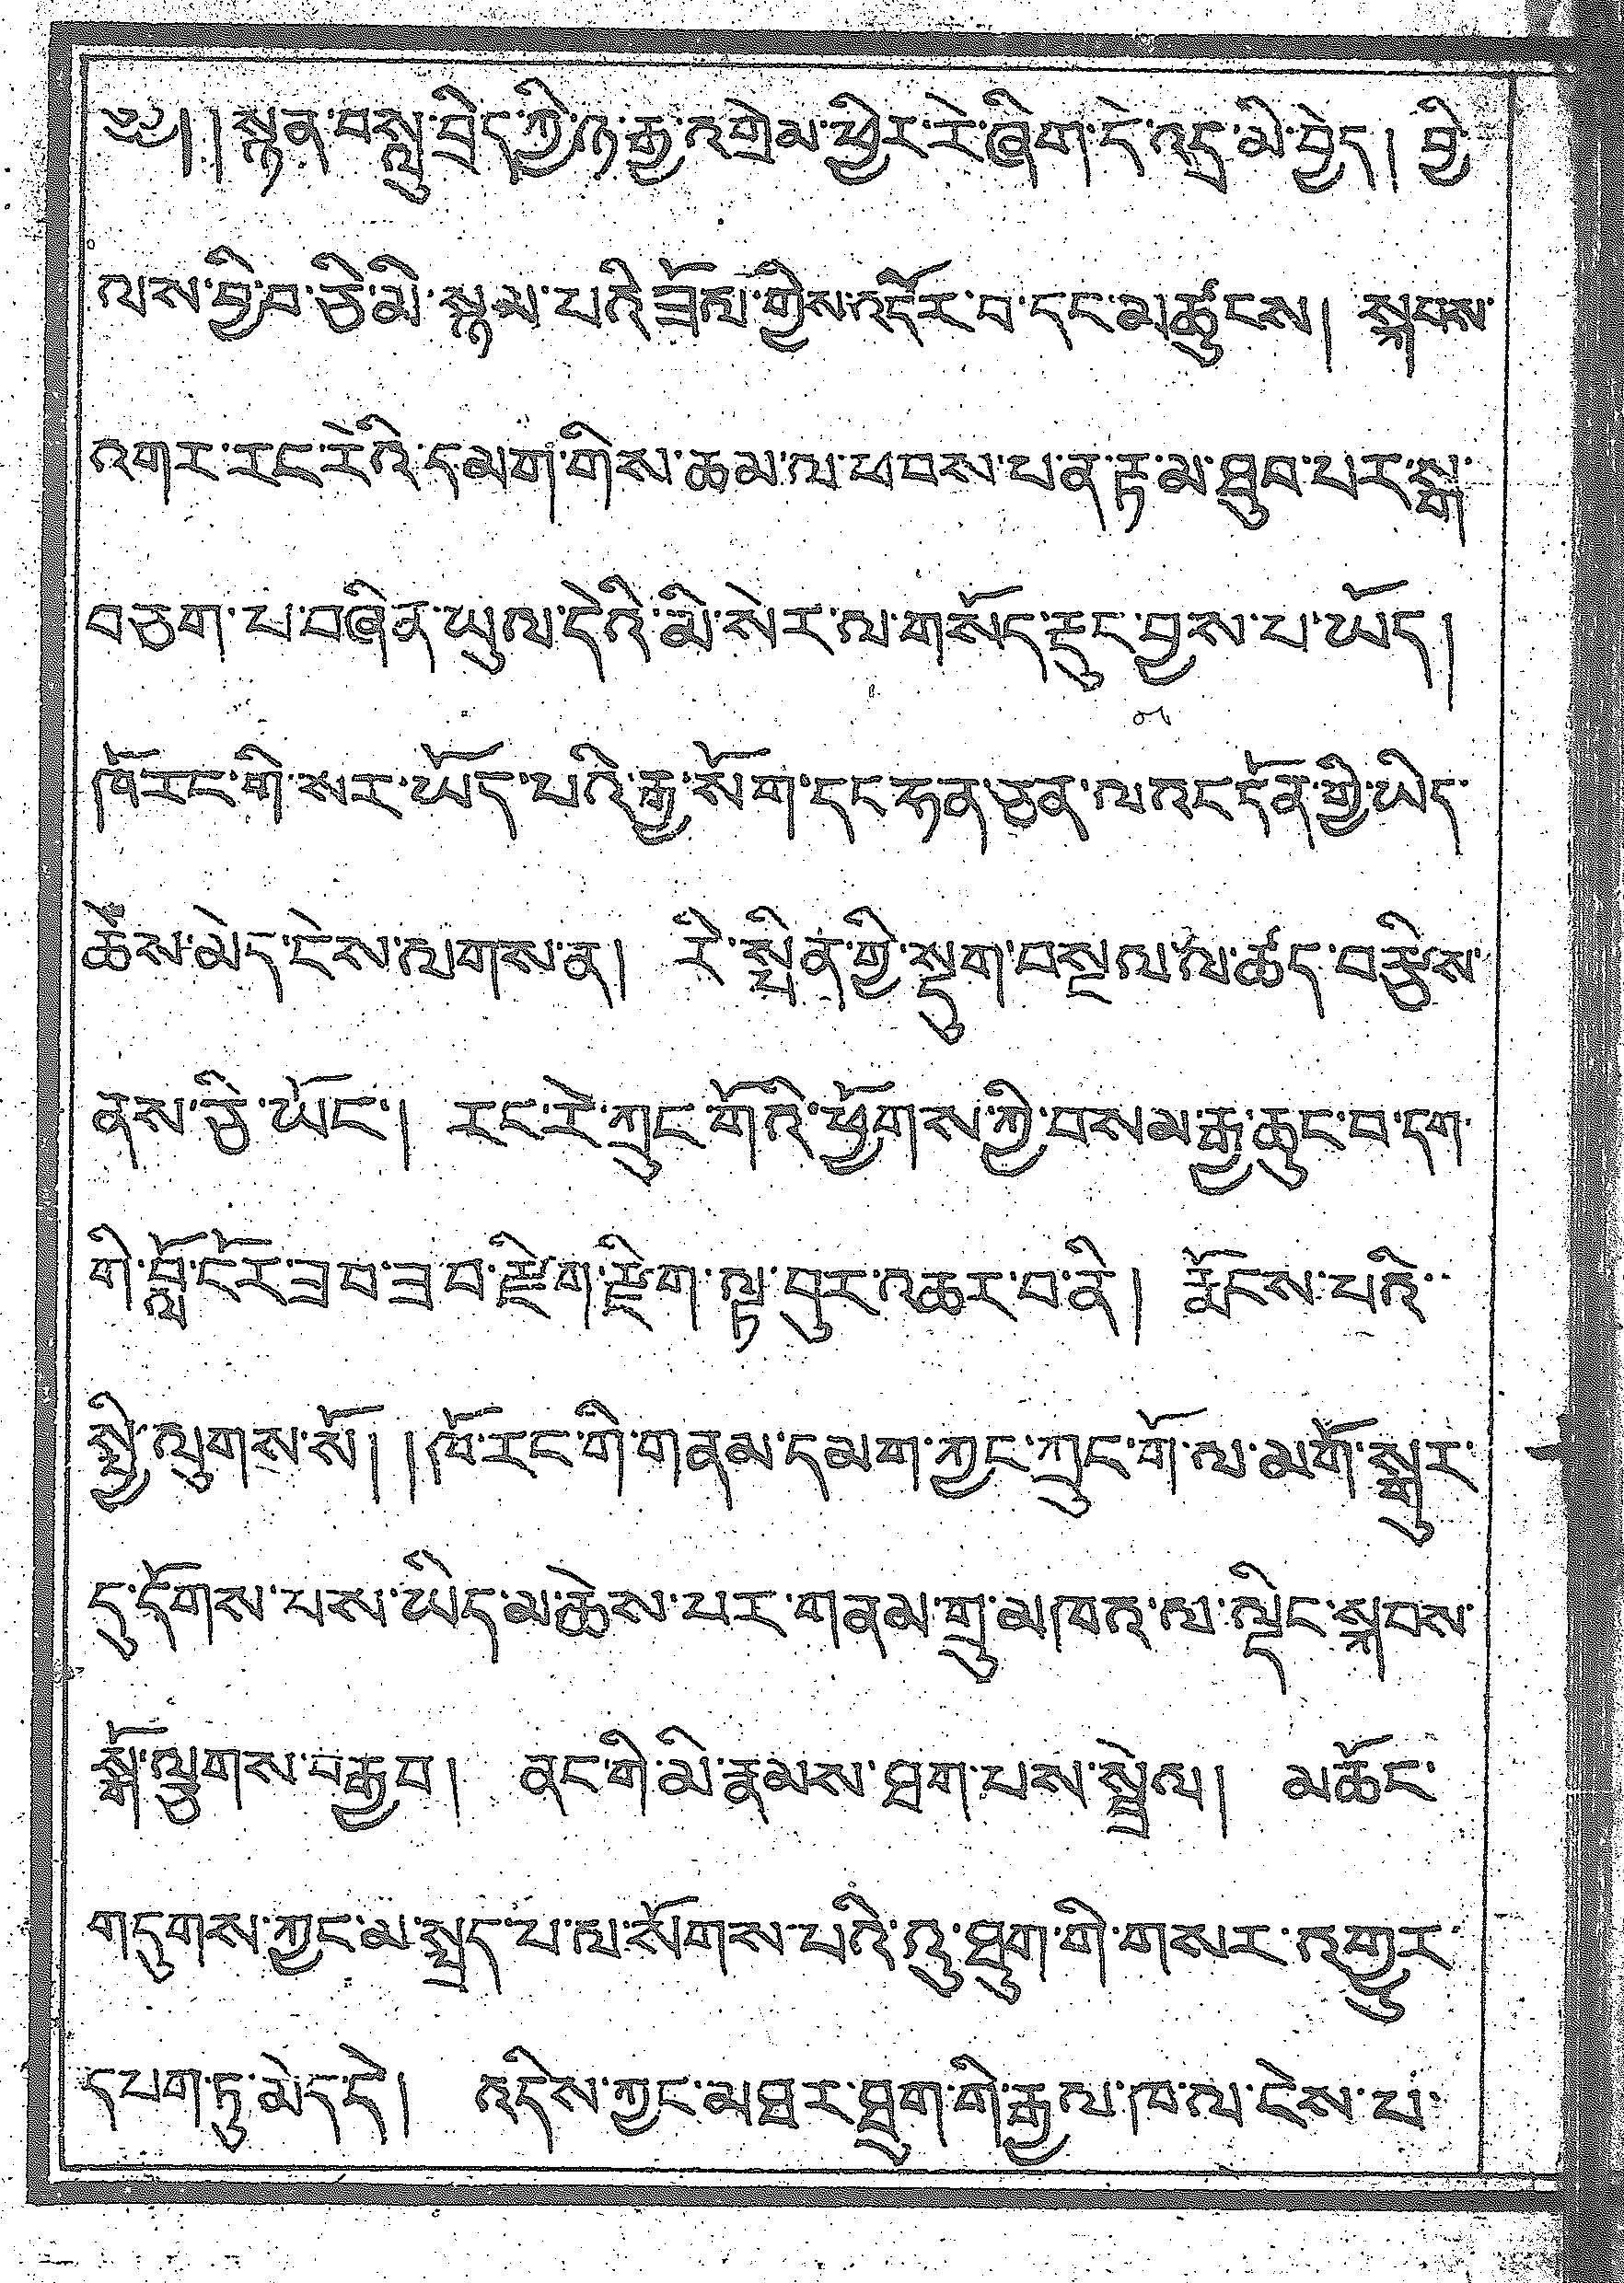 ༄༅། །སྟན་བསླུ་བྲིད་ཀྱི་ཉ་རྒྱ་འགྲེམ་ཕྱིར་རེ་ཞིག་དེ་འདྲ་མི་བྱེད། བྱི་
ལས་བྱི་བ་ཅི་མི་སྙམ་པའི་ཟོལ་གྱིས་འདོར་བ་དང་མཚུངས། སྐབས་
འགར་རང་རེའི་དམག་གིས་ཆམ་ལ་ཕབས་པ་ན་རྟ་མ་ཐུབ་པར་སྒ་
བཅག་པ་བཞིན་ཡུལ་དེའི་མི་སེར་ལ་གསོད་རྡུང་བྱས་པ་ཡོད།
ཁོ་རང་གི་སར་ཡོད་པའི་རྒྱ་སོག་དང་ཧན་ཅན་ལ་འང་དོན་གྱི་ཡིད་
ཆེས་མེད་ངེས་ལགས་ན། རི་སྤྲིན་གྱི་སྡུག་བསྔལ་ལ་ཚད་བརྩིས་
ནས་ཅི་ཡོང། རང་རེ་ཀྲུང་གོའི་ཕྱོགས་ཀྱི་བསམ་རྒྱ་ཆུང་བ་དག་
གི་བློ་ངོར་ཟབ་ཟབ་རྔིག་རྔིག་ལྟ་བུར་འཆར་བ་ནི། རྨོངས་པའི་
སྤྱི་ལུགས་སོ། །ཁོ་རང་གི་གནམ་དམག་ཀྱང་ཀྲུང་གོ་ལ་མགོ་སྒུར་
དུ་དོགས་པས་ཡིད་མ་ཆེས་པར་གནམ་གྲུ་མཁའ་ལ་ལྡིང་སྐབས་
སྒོ་ལྕགས་བརྒྱབ། ནང་གི་མི་རྣམས་ཐག་པས་སྦྲེལ། མཆོང་
གདུགས་ཀྱང་མ་སྤྲད་པ་ལ་སོགས་པའི་འུ་ཐུག་གི་གསར་འགྱུར་
དཔག་ཏུ་མེད་དེ། འདིས་ཀྱང་མཐར་ཐུག་གི་རྒྱལ་ཁ་ལ་ངེས་པ་